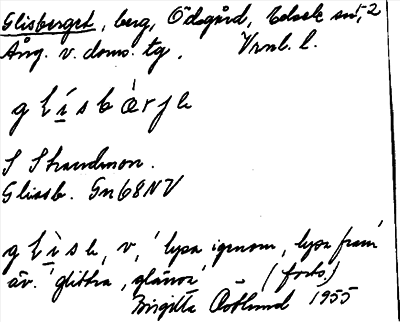 Glisberget, berg, Ödegård, Edsele sn, 2
Ång. v. doms. tg. Vrnl. l.
glisbærje
S Strandmon.
Glissb. Gn68NV
glise, v, 'lysa igenom, lysa fram'
äv. 'glittra, glänsa' (forts.)
Birgitta Östlund 1955